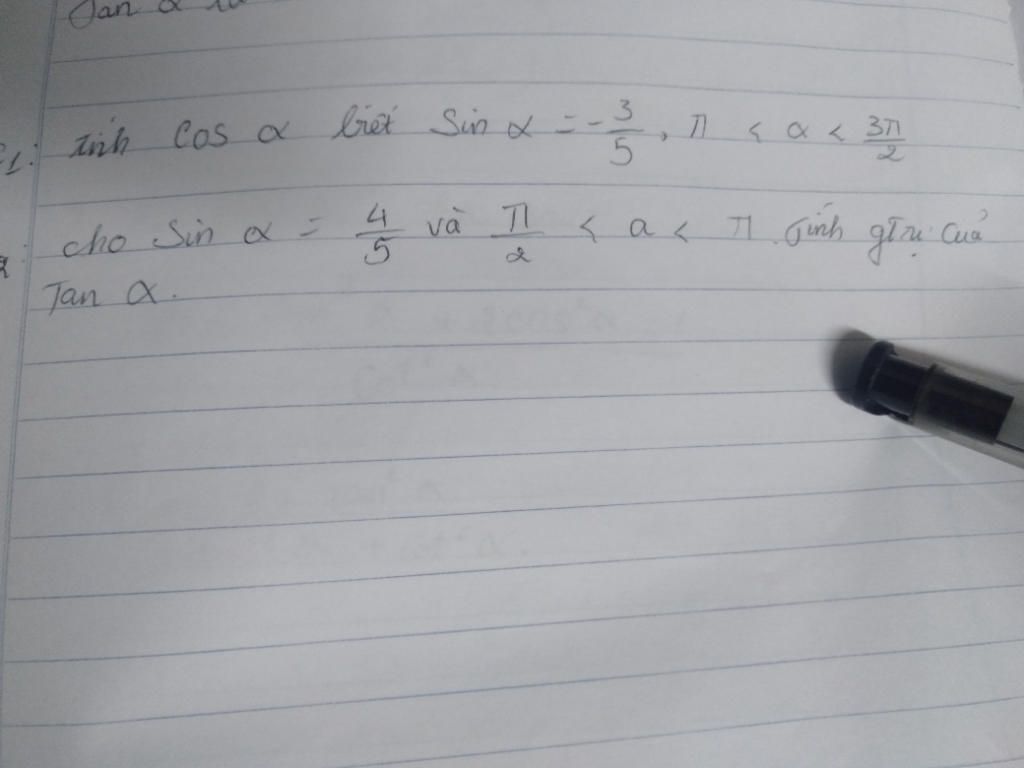 Tan α
1: Tính cos α biết Sin α = - 3/5, π < α < 3π/2
cho Sin α = 4/5 và π/2 < a < π. Tính gtrị của
Tan α.